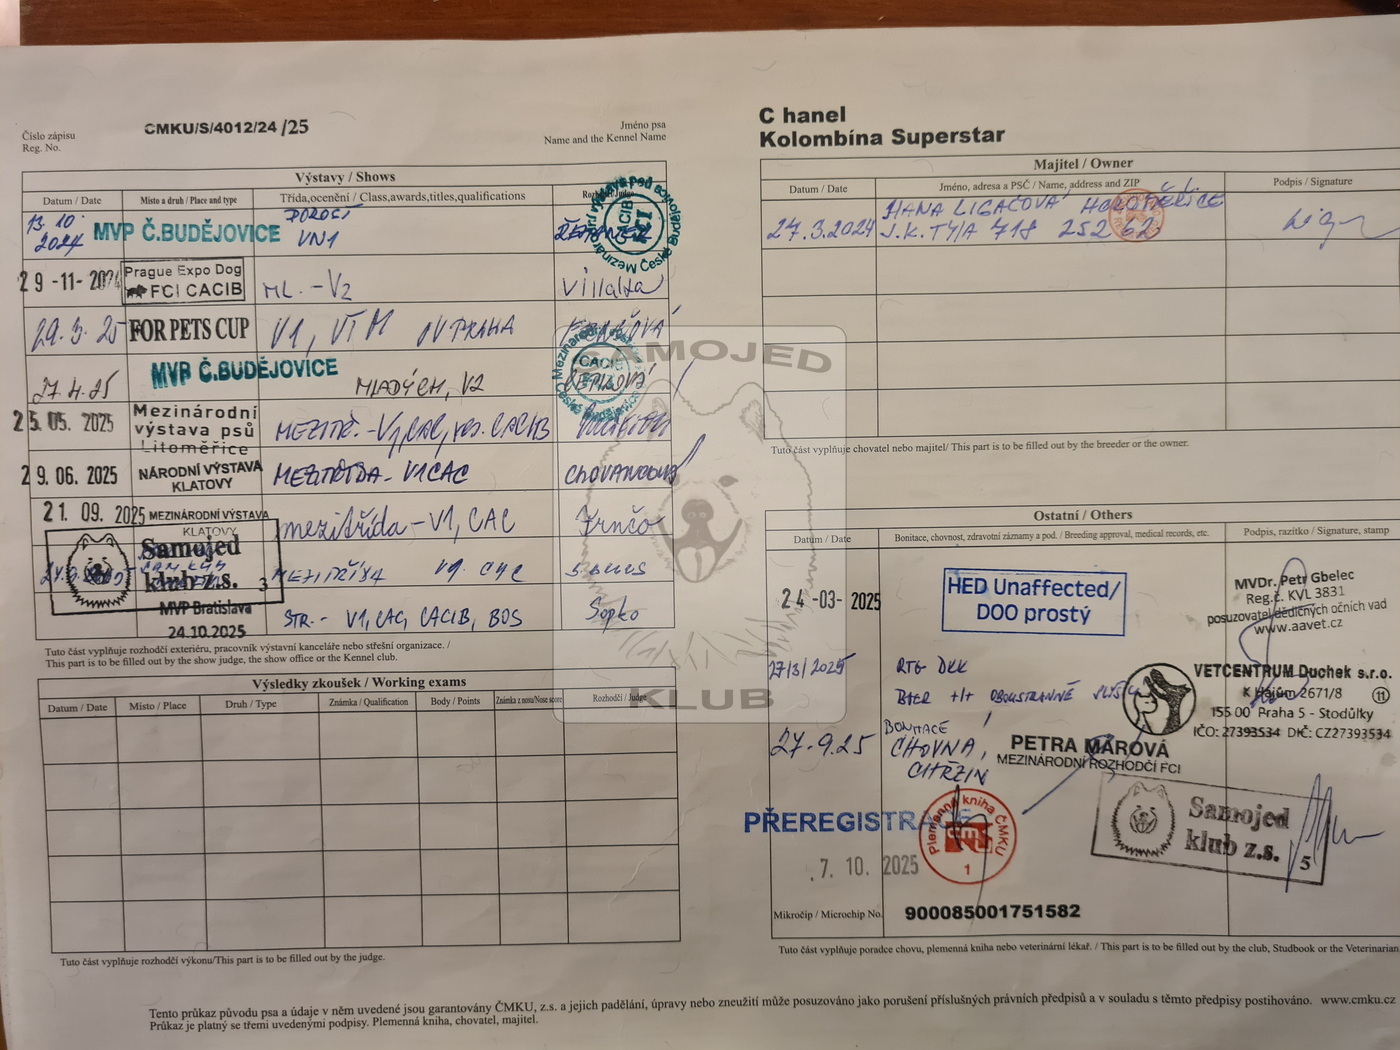 Číslo zápisu
Reg. No.
CMKU/S/4012/24 /25
Jméno psa
Name and the Kennel Name
C hanel
Kolombína Superstar
Výstavy / Shows
Datum / Date
Místo a druh / Place and type
Třída,ocenění / Class,awards,titles,qualifications
13.10.
2024
MVP Č.BUDĚJOVICE
DOROST
VN1
29 -11- 2024
Prague Expo Dog
FCI CACIB
ML. - V2
Villalta
29.3.25
FOR PETS CUP
V1, VTM OV PRAHA
27.4.25
MVP Č.BUDĚJOVICE
MLADÝCH, V2
25. 05. 2025
Mezinárodní
výstava psů
Litoměřice
MEZITŘ. - V1, CAC, res. CACIB
29. 06. 2025
NÁRODNÍ VÝSTAVA
KLATOVY
MEZITŘÍDA - V1 CAC
CHOVANCOVÁ
21. 09. 2025
MEZINÁRODNÍ VÝSTAVA
KLATOVY
mezitřída - V1, CAC
Samojed
klub z.s. 3
MEZITŘÍDA V1, CAC
MVP Bratislava
24.10.2025
STR. - V1, CAC, CACIB, BOS
Sopko
Tuto část vyplňuje rozhodčí exteriéru, pracovník výstavní kanceláře nebo střešní organizace. /
This part is to be filled out by the show judge, the show office or the Kennel club.
Výsledky zkoušek / Working exams
Datum / Date
Místo / Place
Druh / Type
Známka / Qualification
Body / Points
Známka z nosu/Nose score
Rozhodčí / Judge
Tuto část vyplňuje rozhodčí výkonu/This part is to be filled out by the judge.
Majitel / Owner
Datum / Date
Jméno, adresa a PSČ / Name, address and ZIP
Podpis / Signature
27.3.2024
HANA LIGAČOVÁ HOROMĚŘICE
J.K. TYLA 718 252 62
Tuto část vyplňuje chovatel nebo majitel/ This part is to be filled out by the breeder or the owner.
SAMOJED
KLUB
Ostatní / Others
Datum / Date
Bonitace, chovnost, zdravotní záznamy a pod. / Breeding approval, medical records, etc.
Podpis, razítko / Signature, stamp
24 -03- 2025
HED Unaffected/
DOO prostý
MVDr. Petr Gbelec
Reg.č. KVL 3831
posuzovatel dědičných očních vad
www.aavet.cz
27/3/2025
RTG DKK
BAER +/+ OBOUSTRANNĚ SLYŠÍCÍ
VETCENTRUM Duchek s.r.o.
K Hájům 2671/8
155 00 Praha 5 - Stodůlky
IČO: 27393534 DIČ: CZ27393534
11
27.9.25
BONITACE
CHOVNÁ,
CHŘZIN
PETRA MÁROVÁ
MEZINÁRODNÍ ROZHODČÍ FCI
Samojed
klub z.s. 5
PŘEREGISTRACE
Plemenná kniha ČMKU
1
. 7. 10. 2025
Mikročip / Microchip No.
900085001751582
Tuto část vyplňuje poradce chovu, plemenná kniha nebo veterinární lékař. / This part is to be filled out by the club, Studbook or the Veterinarian
Tento průkaz původu psa a údaje v něm uvedené jsou garantovány ČMKU, z.s. a jejich padělání, úpravy nebo zneužití může posuzováno jako porušení příslušných právních předpisů a v souladu s těmito předpisy postihováno. www.cmku.cz
Průkaz je platný se třemi uvedenými podpisy. Plemenná kniha, chovatel, majitel.